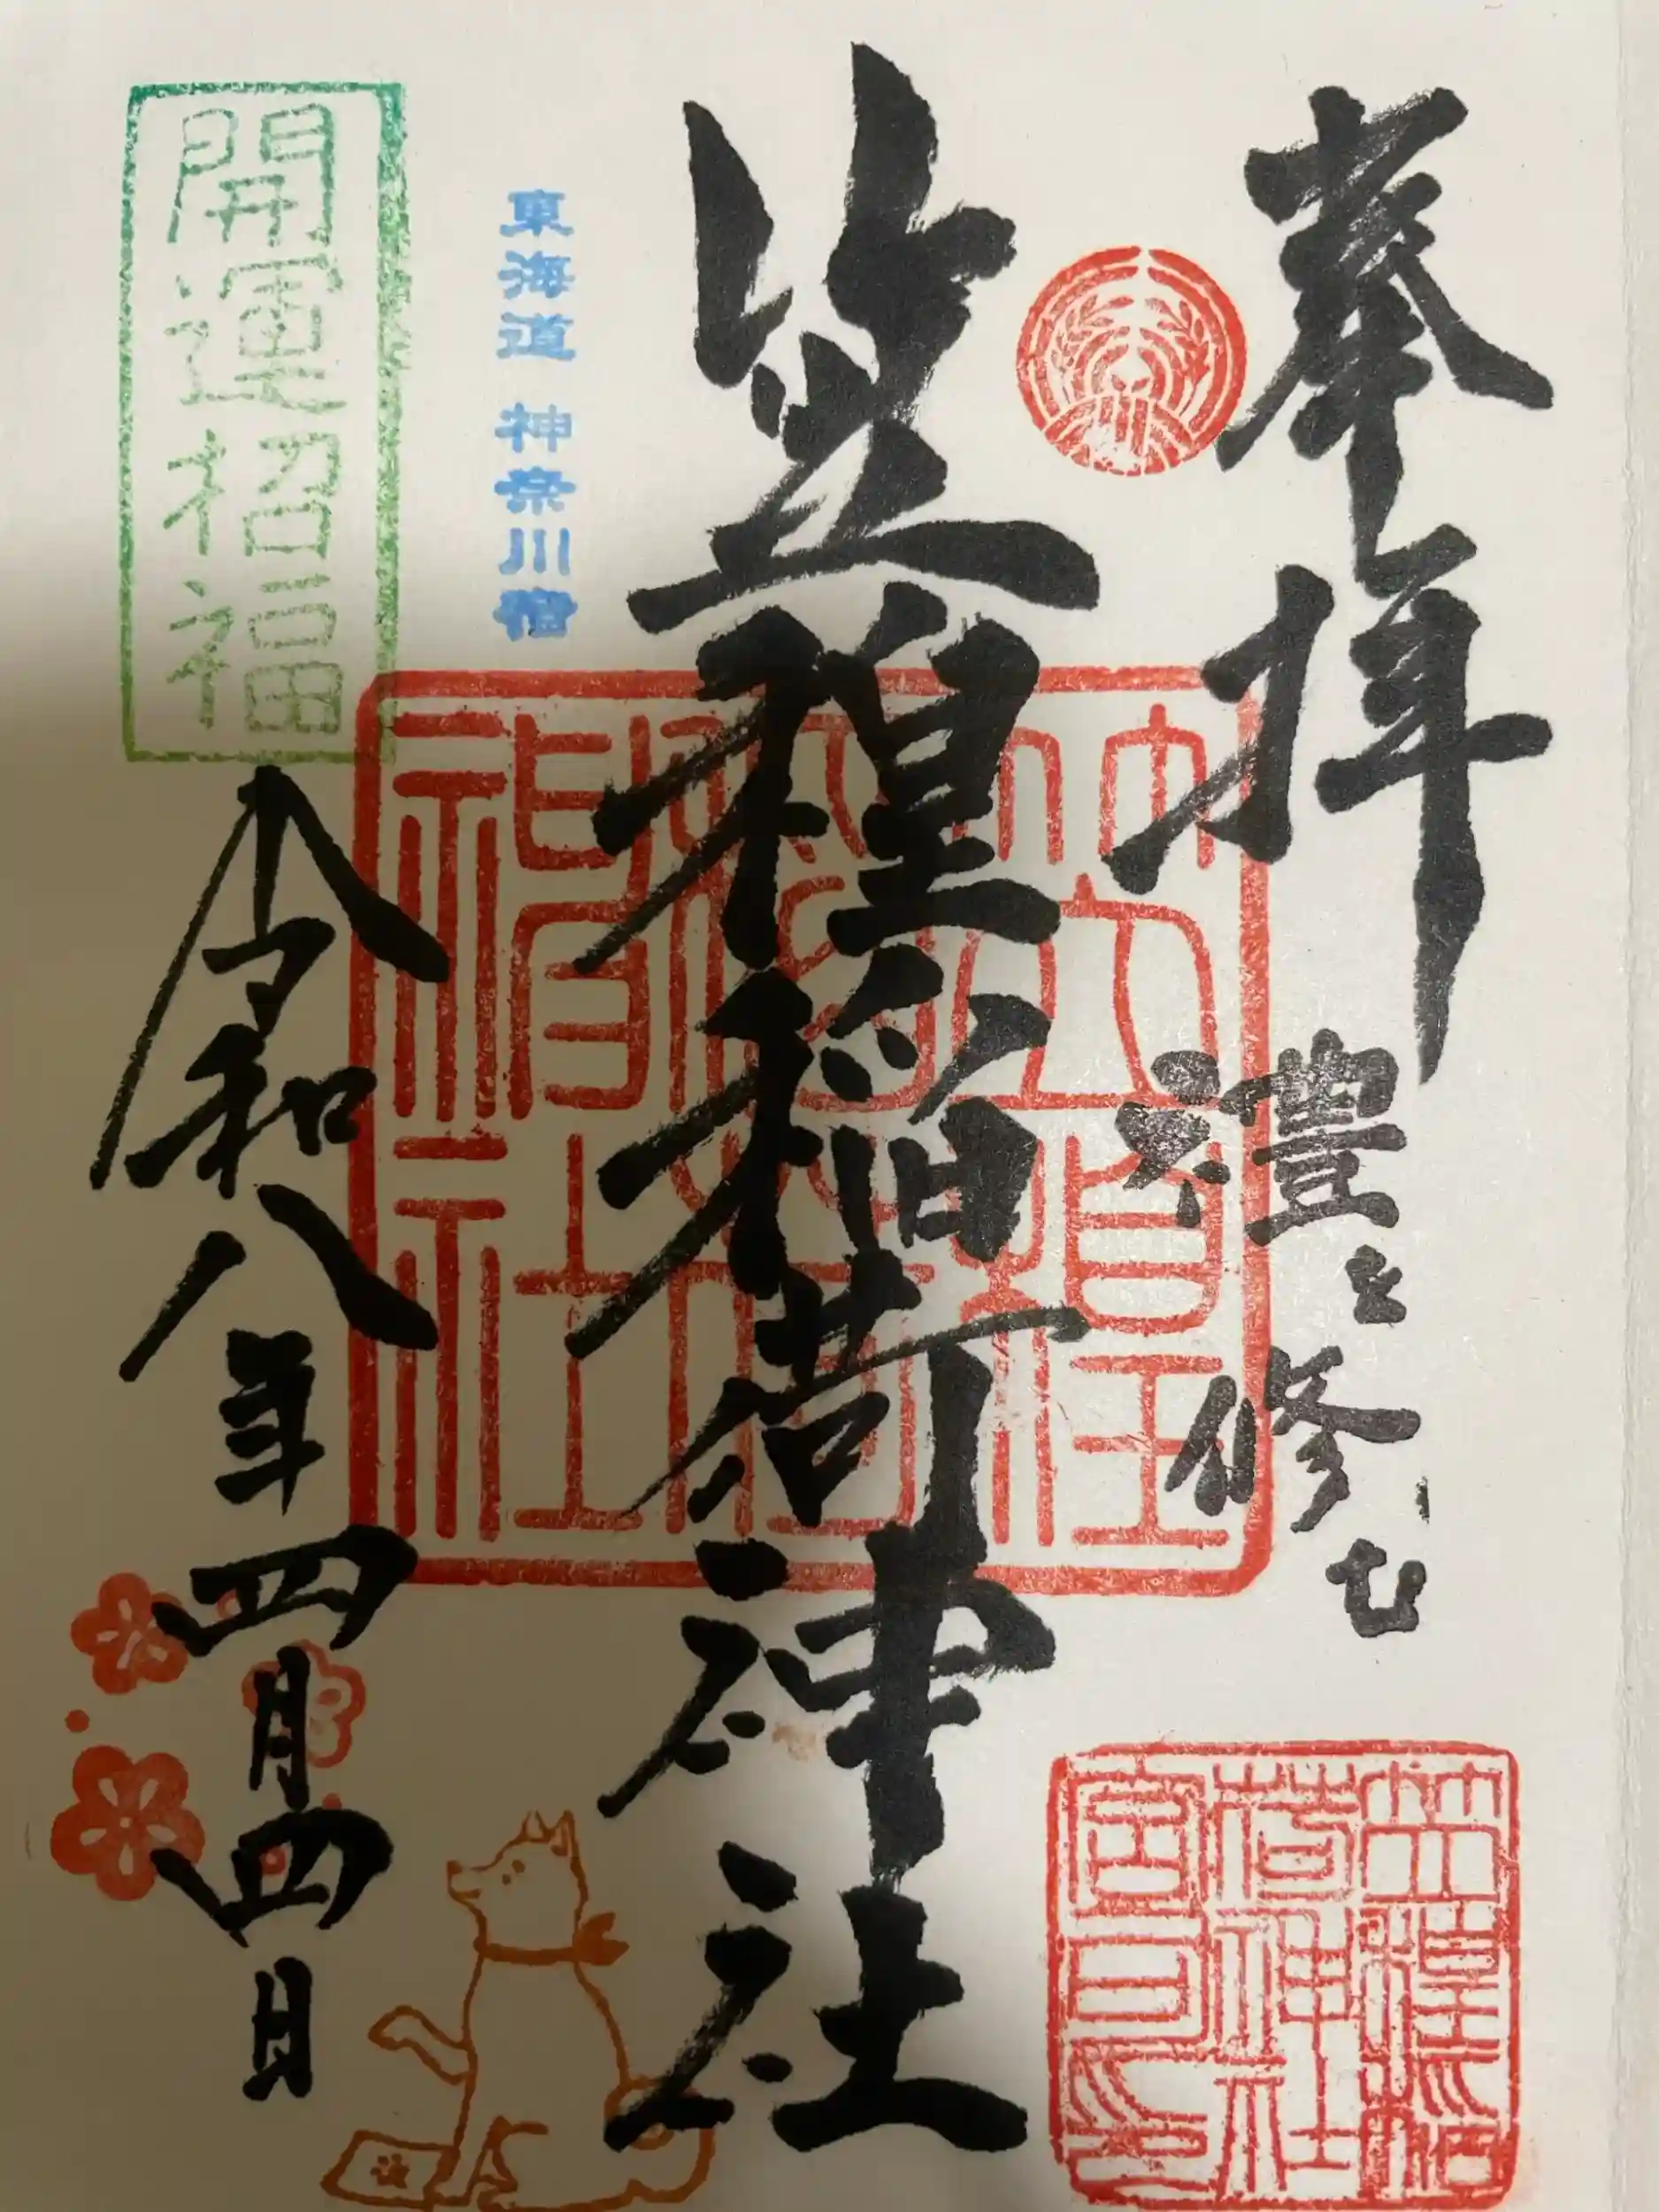 奉拝
禮を修む
笠䅣稲荷神社
東海道 神奈川宿
開運招福
令和八年四月四日
笠䅣稲
荷神社
宮司之印